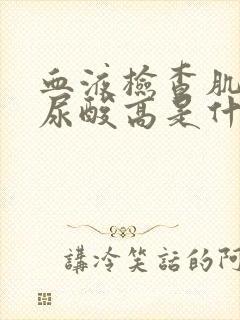 血液檢查肌
尿酸高是什
講冷笑話的阿